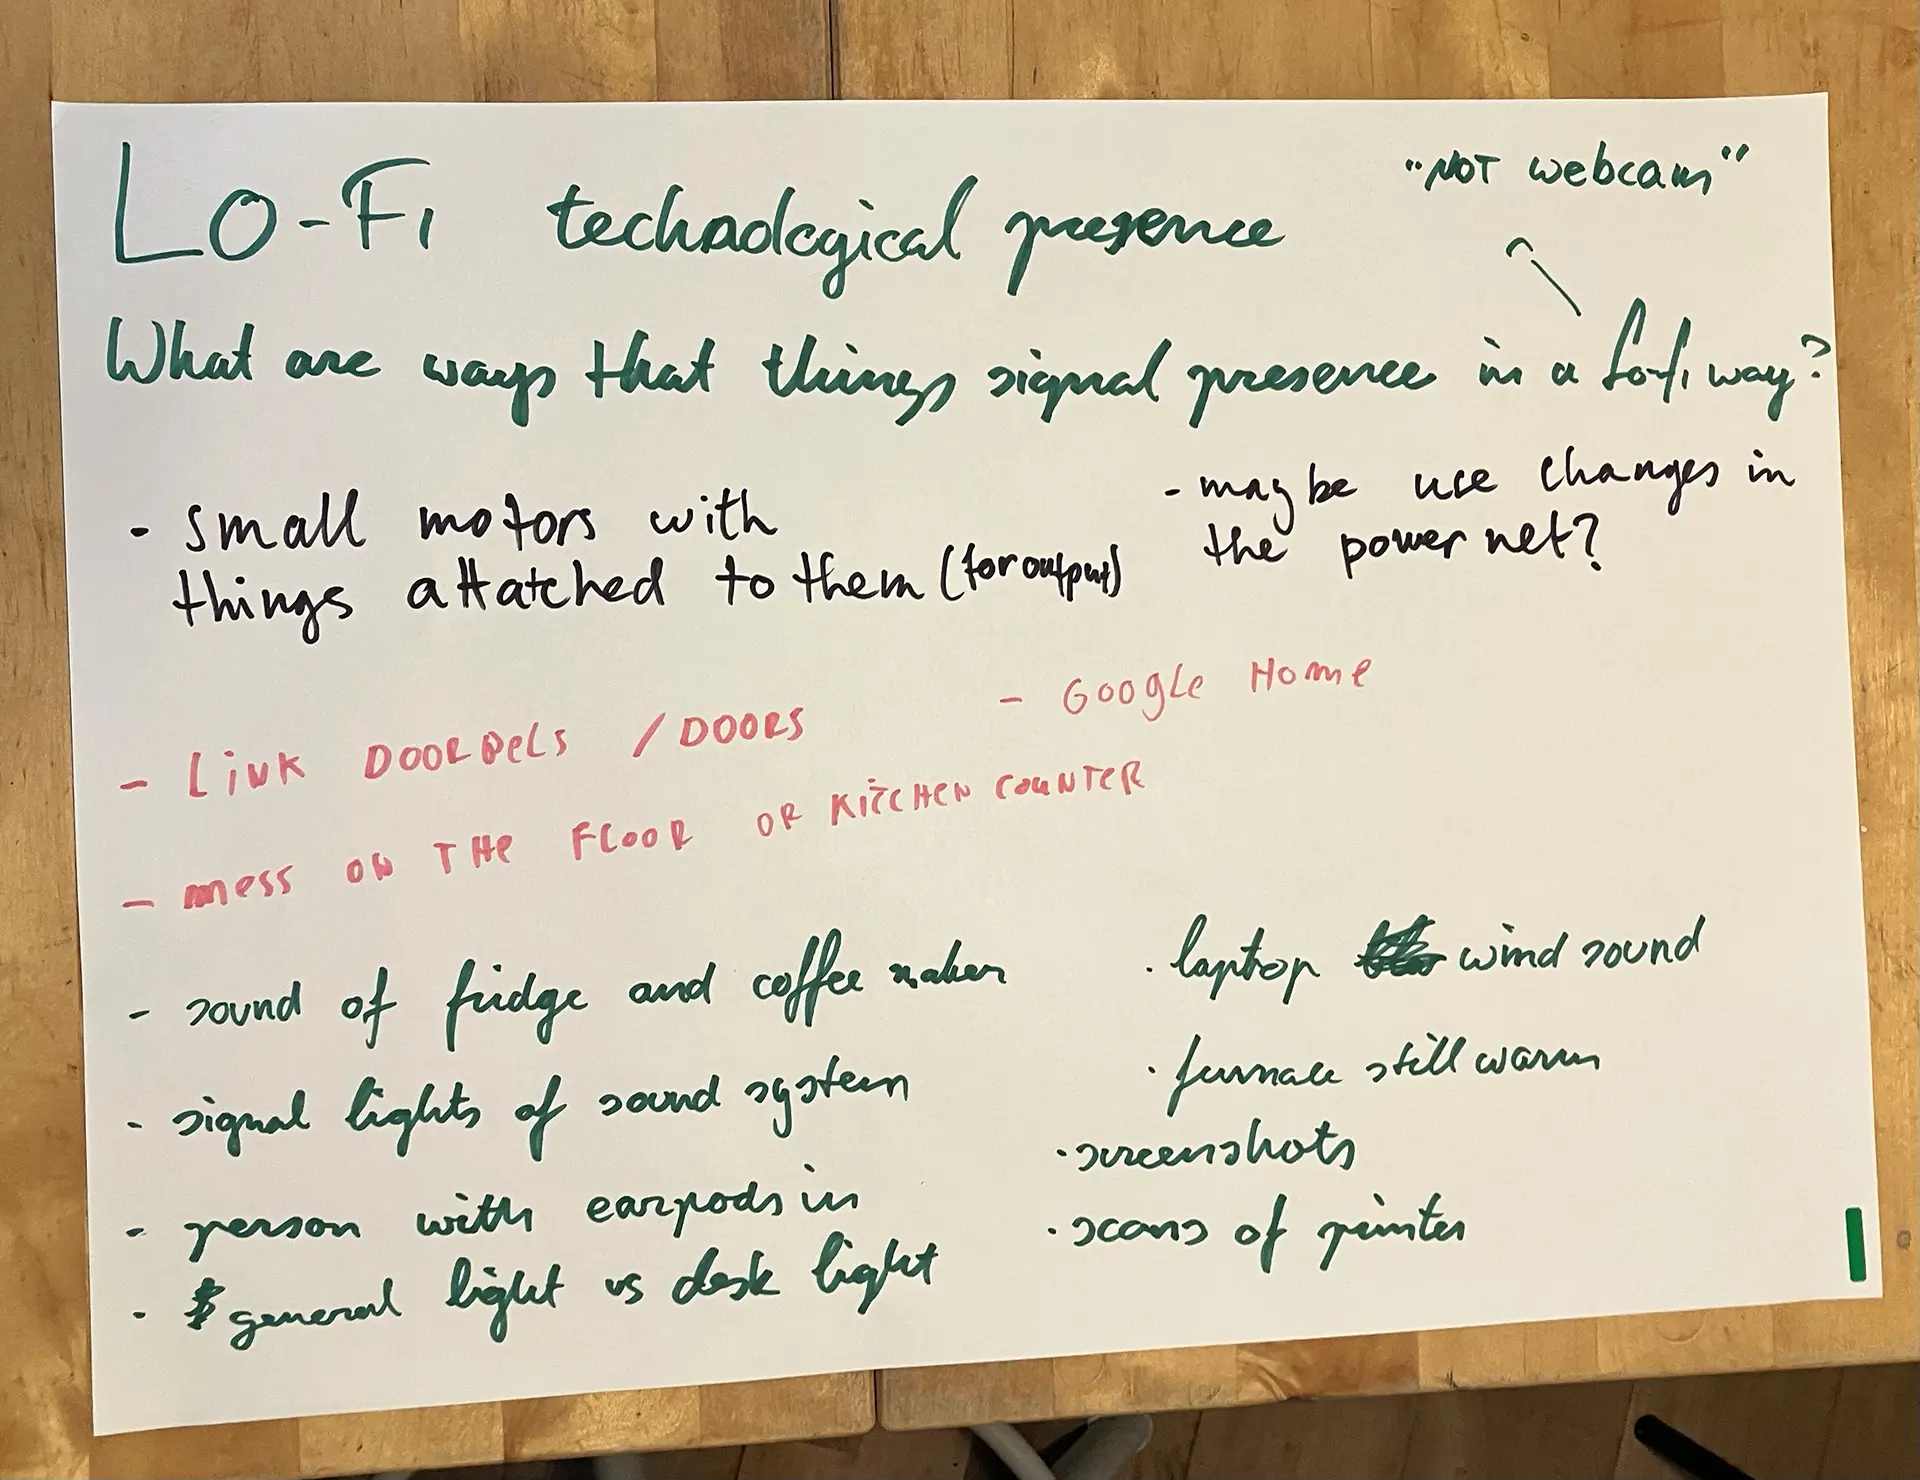 "NOT webcam"
LO-FI technological presence
What are ways that things signal presence in a lo-fi way?
- small motors with
things attatched to them (for output)
- maybe use changes in
the power net?
- LINK DOORBELS / DOORS
- GOOGLE HOME
- MESS ON THE FLOOR OR KITCHEN COUNTER
- sound of fridge and coffee maker
- signal lights of sound system
- person with earpods in
- general light vs desk light
· laptop wind sound
· furnace still warm
· screenshots
· scans of printer